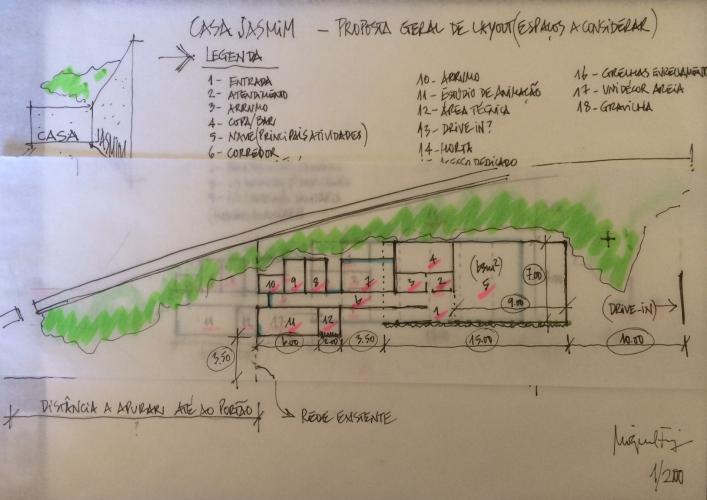 CASA JASMIM - PROPOSTA GERAL DE LAYOUT (ESPAÇOS A CONSIDERAR)
LEGENDA
1 - ENTRADA
2 - ATENDIMENTO
3 - ARRUMO
4 - COPA/BAR
5 - NAVE (PRINCIPAIS ATIVIDADES)
6 - CORREDOR
10 - ARRUMO
11 - ESTÚDIO DE ANIMAÇÃO
12 - ÁREA TÉCNICA
13 - DRIVE-IN?
14 - HORTA
DEDICADO
17 - UNIDÉCOR AREIA
18 - GRAVILHA
CASA
JASMIM
10
9
8
7
6
3
2
4
(63m²)
5
1
7.00
9.00
(DRIVE-IN)
11
12
3.50
6.00
2.00
3.50
15.00
10.00
DISTÂNCIA A APURAR ATÉ AO PORTÃO
REDE EXISTENTE
1/200